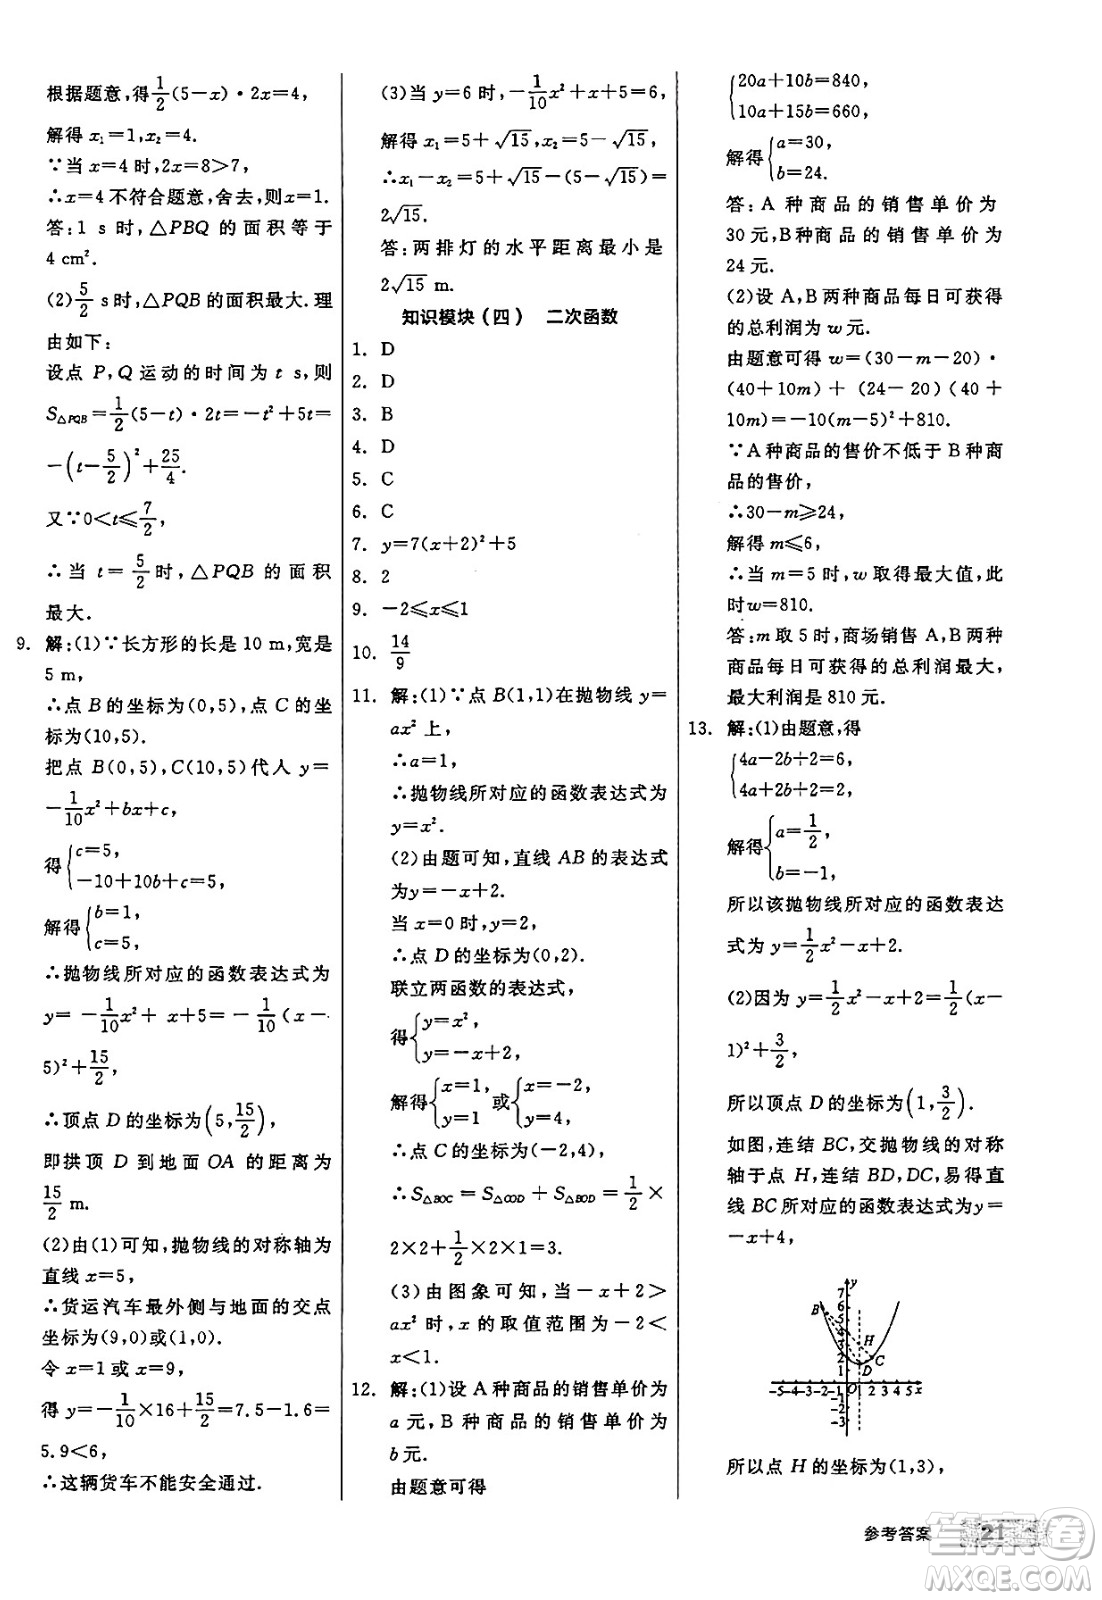 根据题意,得1/2(5-x)·2x=4,
解得 x₁=1,x₂=4.
∵当 x=4 时,2x=8>7,
∴x=4 不符合题意,舍去,则x=1.
答:1 s 时,△PBQ 的面积等于
4 cm².
(2)5/2 s时,△PQB 的面积最大.理
由如下:
设点 P,Q 运动的时间为 t s,则
S△PQB=1/2(5-t)·2t=-t²+5t=
-(t-5/2)²+25/4.
又∵0<t≤7/2,
∴当 t=5/2 时,△PQB 的面积
最大.
9. 解:(1)∵长方形的长是 10 m,宽是
5 m,
∴点 B 的坐标为(0,5),点 C 的坐
标为(10,5).
把点 B(0,5),C(10,5)代人 y=
-1/10x²+bx+c,
得{c=5,
-10+10b+c=5,
解得{b=1,
c=5,
∴抛物线所对应的函数表达式为
y=-1/10x²+x+5=-1/10(x-
5)²+15/2,
∴顶点 D 的坐标为(5,15/2),
即拱顶 D 到地面 OA 的距离为
15/2 m.
(2)由(1)可知,抛物线的对称轴为
直线 x=5,
∴货运汽车最外侧与地面的交点
坐标为(9,0)或(1,0).
令 x=1 或 x=9,
得 y=-1/10×16+15/2=7.5-1.6=
5.9<6,
∴这辆货车不能安全通过.
(3)当 y=6 时,-1/10x²+x+5=6,
解得 x₁=5+√15,x₂=5-√15,
∴x₁-x₂=5+√15-(5-√15)=
2√15.
答:两排灯的水平距离最小是
2√15 m.
知识模块(四) 二次函数
1. D
2. D
3. B
4. D
5. C
6. C
7. y=7(x+2)²+5
8. 2
9. -2≤x≤1
10. 14/9
11. 解:(1)∵点 B(1,1)在抛物线 y=
ax² 上,
∴a=1,
∴抛物线所对应的函数表达式为
y=x².
(2)由题可知,直线 AB 的表达式
为y=-x+2.
当 x=0 时,y=2,
∴点 D 的坐标为(0,2).
联立两函数的表达式,
得{y=x²,
y=-x+2,
解得{x=1,
y=1 或{x=-2,
y=4,
∴点 C 的坐标为(-2,4),
∴S△BOC=S△COD+S△BOD=1/2×
2×2+1/2×2×1=3.
(3)由图象可知,当-x+2>
ax² 时,x 的取值范围为-2<
x<1.
12. 解:(1)设 A 种商品的销售单价为
a 元,B 种商品的销售单价为
b 元.
由题意可得
{20a+10b=840,
10a+15b=660,
解得{a=30,
b=24.
答:A 种商品的销售单价为
30 元,B种商品的销售单价为
24 元.
(2)设 A,B 两种商品每日可获得
的总利润为 w 元.
由题意可得 w=(30-m-20)·
(40+10m)+(24-20)(40+
10m)=-10(m-5)²+810.
∵A 种商品的售价不低于 B 种商
品的售价,
∴30-m≥24,
解得 m≤6,
∴当 m=5 时,w 取得最大值,此
时w=810.
答:m 取 5 时,商场销售 A,B 两种
商品每日可获得的总利润最大,
最大利润是 810 元.
13. 解:(1)由题意,得
{4a-2b+2=6,
4a+2b+2=2,
解得{a=1/2,
b=-1,
所以该抛物线所对应的函数表达
式为 y=1/2x²-x+2.
(2)因为 y=1/2x²-x+2=1/2(x-
1)²+3/2,
所以顶点 D 的坐标为(1,3/2).
如图,连结 BC,交抛物线的对称
轴于点 H,连结 BD,DC,易得直
线 BC 所对应的函数表达式为 y=
-x+4,
y
7
6
5
4
3
2
1
B
H
C
D
-5-4-3-2-1 O 1 2 3 4 5 x
-1
-2
-3
所以点 H 的坐标为(1,3),
参考答案 21
答案卷
MXQE.COM